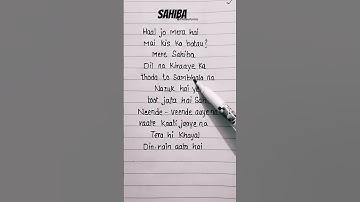 SAHIBA
Haal jo mera hai
Mai kis ko batau?
Mere Sahiba
Dil na Kiraaye ka
thoda to Sambhalo na
Nazuk hai ye
toot jata hai Sah
Neende - veende aaye na
raate kaati jaaye na
Tera hi Khayal
Din-rain aata hai